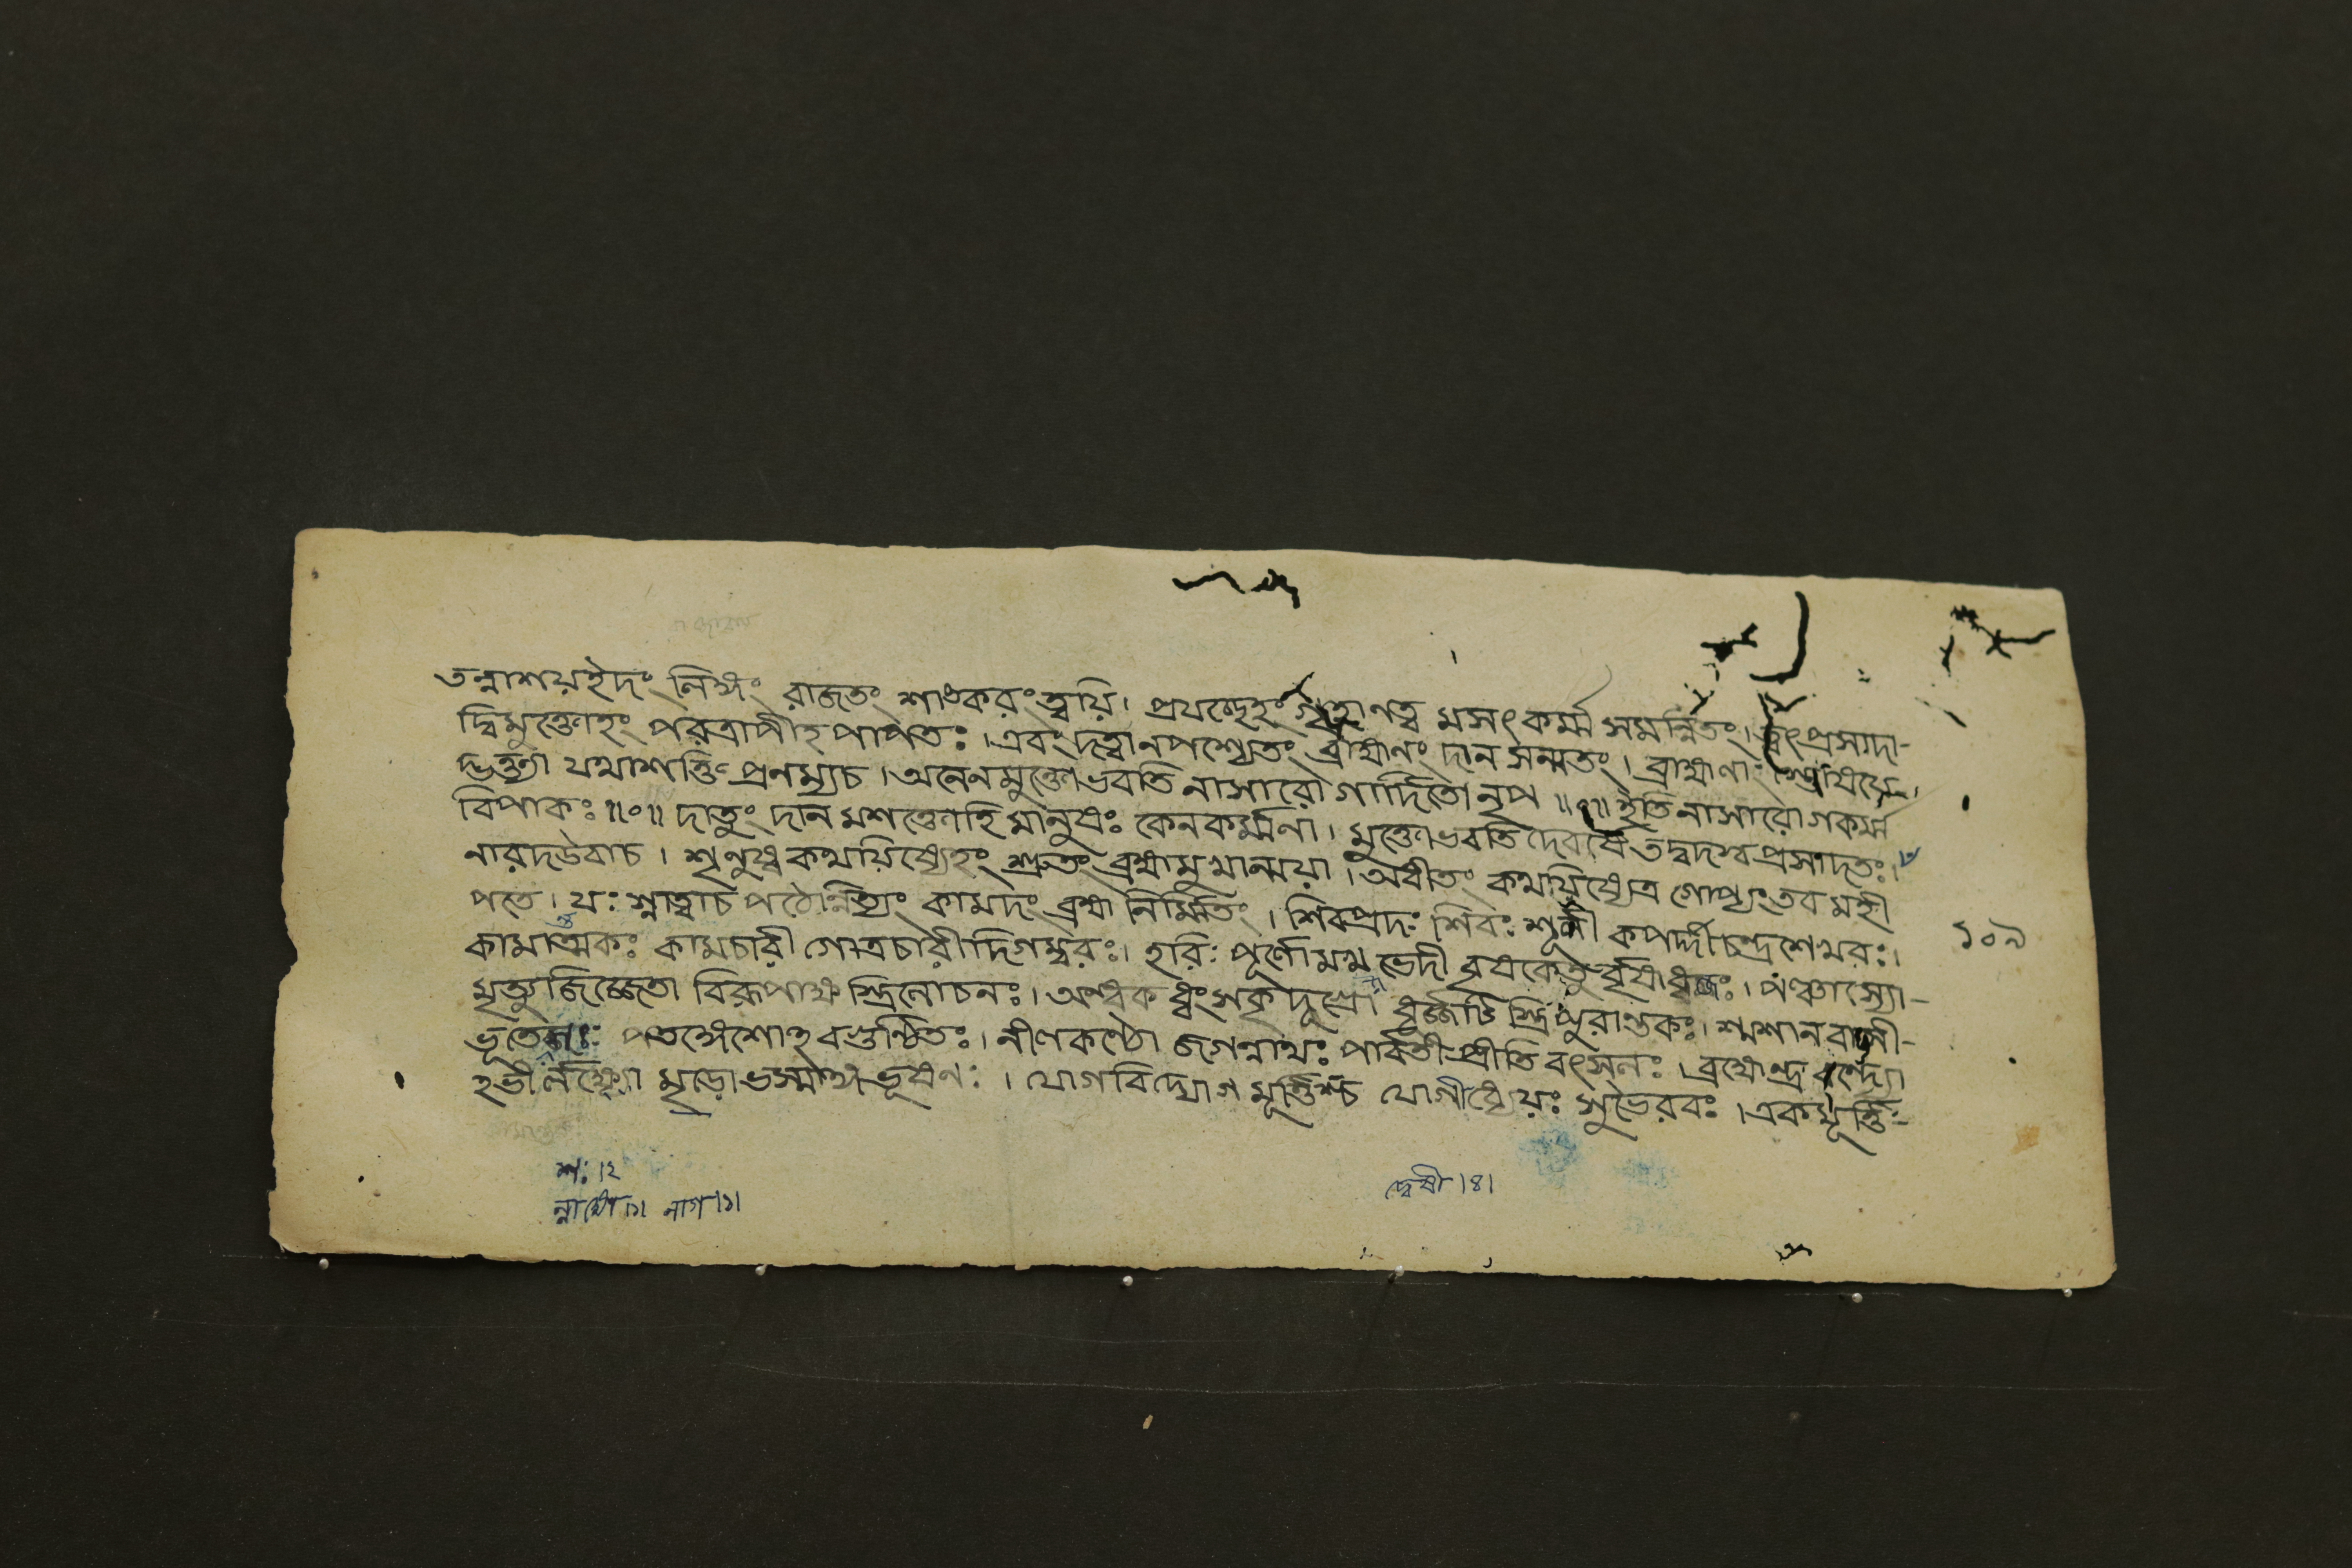 তন্নাশয়ইদং লিঙ্গং রাজতং শাঙকরং ত্বয়ি। প্রযচ্ছেহং গৃহাণত্ব মসৎকর্ম্ম সমর্ন্বিতং। ত্বৎপ্রসাদা-
দ্বিমুক্তোহং পরত্রাপীহ পাপতঃ। এবং দত্বানপশ্যেতং ব্রাহ্মণং দান সন্মতং। ব্রাহ্মণাং
দ্ভক্ত্যা যথাশক্তি প্রনম্যচ। অনেনমুক্তোভবতি নাসারোগার্দিতোনৃপ॥ ॥ইতি নাসারোগকর্ম্ম
বিপাকঃ॥০॥ দাতুং দানমশক্তোহি মানুষঃ কেনকর্ম্মনা। মুক্তোভবতি দেবর্ষে তদ্বদস্ব প্রসাদতঃ।
নারাদউবাচ। শৃনুষ্ব কথয়িষ্যেহং শ্রুতং ব্রহ্মামুখান্ময়া। অধীতং কথয়িষ্যেত্র গোপ্যং তব মহী
পতে। যঃ স্নাত্বাচ পঠেন্নিত্যং কামাদং ব্রহ্ম নির্ম্মিতং। শিবপ্রদঃ শিবঃ শূলী কপর্দ্দীচন্দ্রশেখরঃ।
কামান্তকঃ কামচারী গোত্রচারীদিগম্বরঃ। হরিঃ পূর্ণোমখভেদী বৃষকেতুর্বৃষধ্বজঃ। পঞ্চাস্যো-
মৃত্যুজিজ্জেতা বিরূপাক্ষ স্ত্রিলোচনঃ। অন্ধক ধ্বংসকৃদ্ ধূর্জ্জটি স্ত্রিপুরান্তকঃ। শ্মশানবাসী-
ভূতেশঃ পতঙ্গেশোহবগুণ্ঠিতঃ। নীলকণ্ঠো জগন্নাথঃ পার্ব্বতী প্রীতি বৎসলঃ। ব্রহ্মেন্দ্র বন্দ্যো
মৃড়োভস্মাঙ্গভূষণঃ। যোগবিদ্যোগ মূর্ত্তিশ্চ যোগীধ্যেয়ঃ সুভৈরবঃ। একমূর্ত্তি-
১০৯
শঃ।২
নাগ।১।
দ্বেষী।৪।